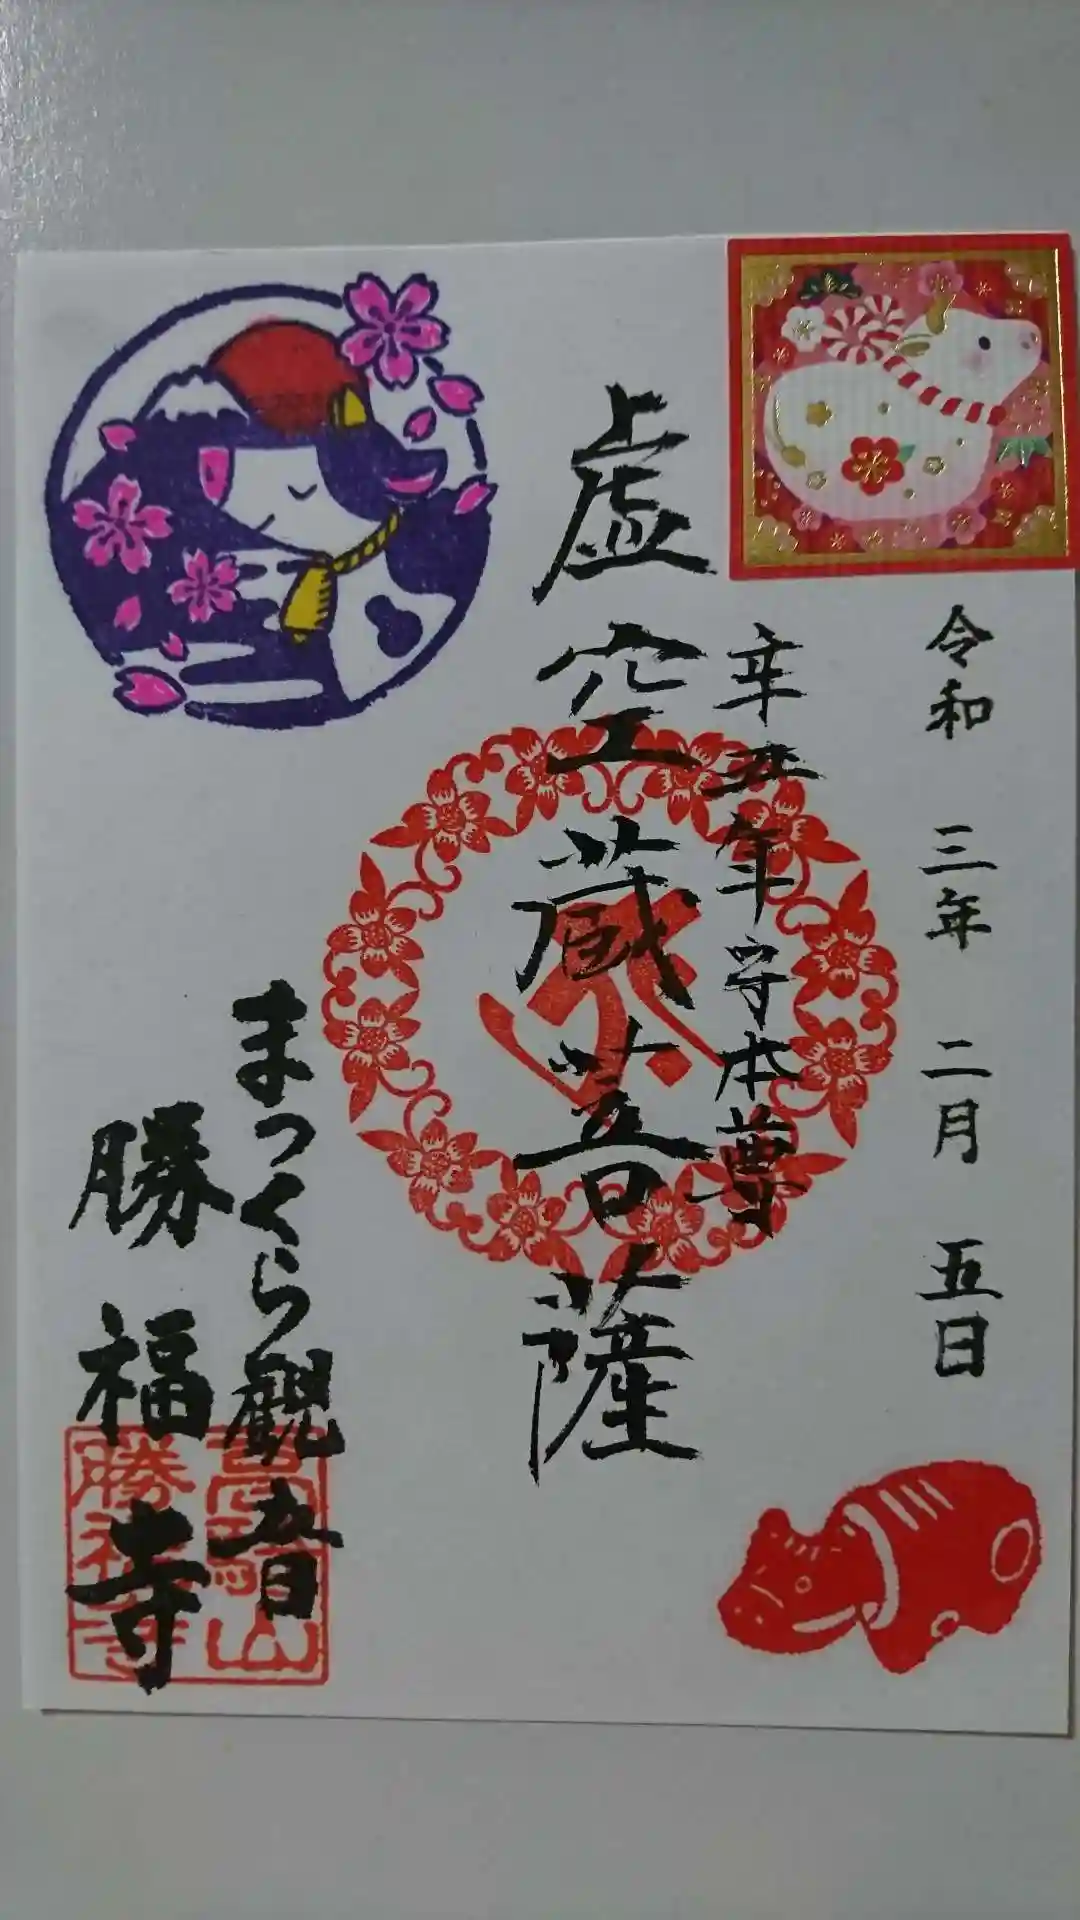 令和 三年 二月 五日
辛丑年守本尊
虚空蔵菩薩
まっくら観音
勝福寺
勝福寺